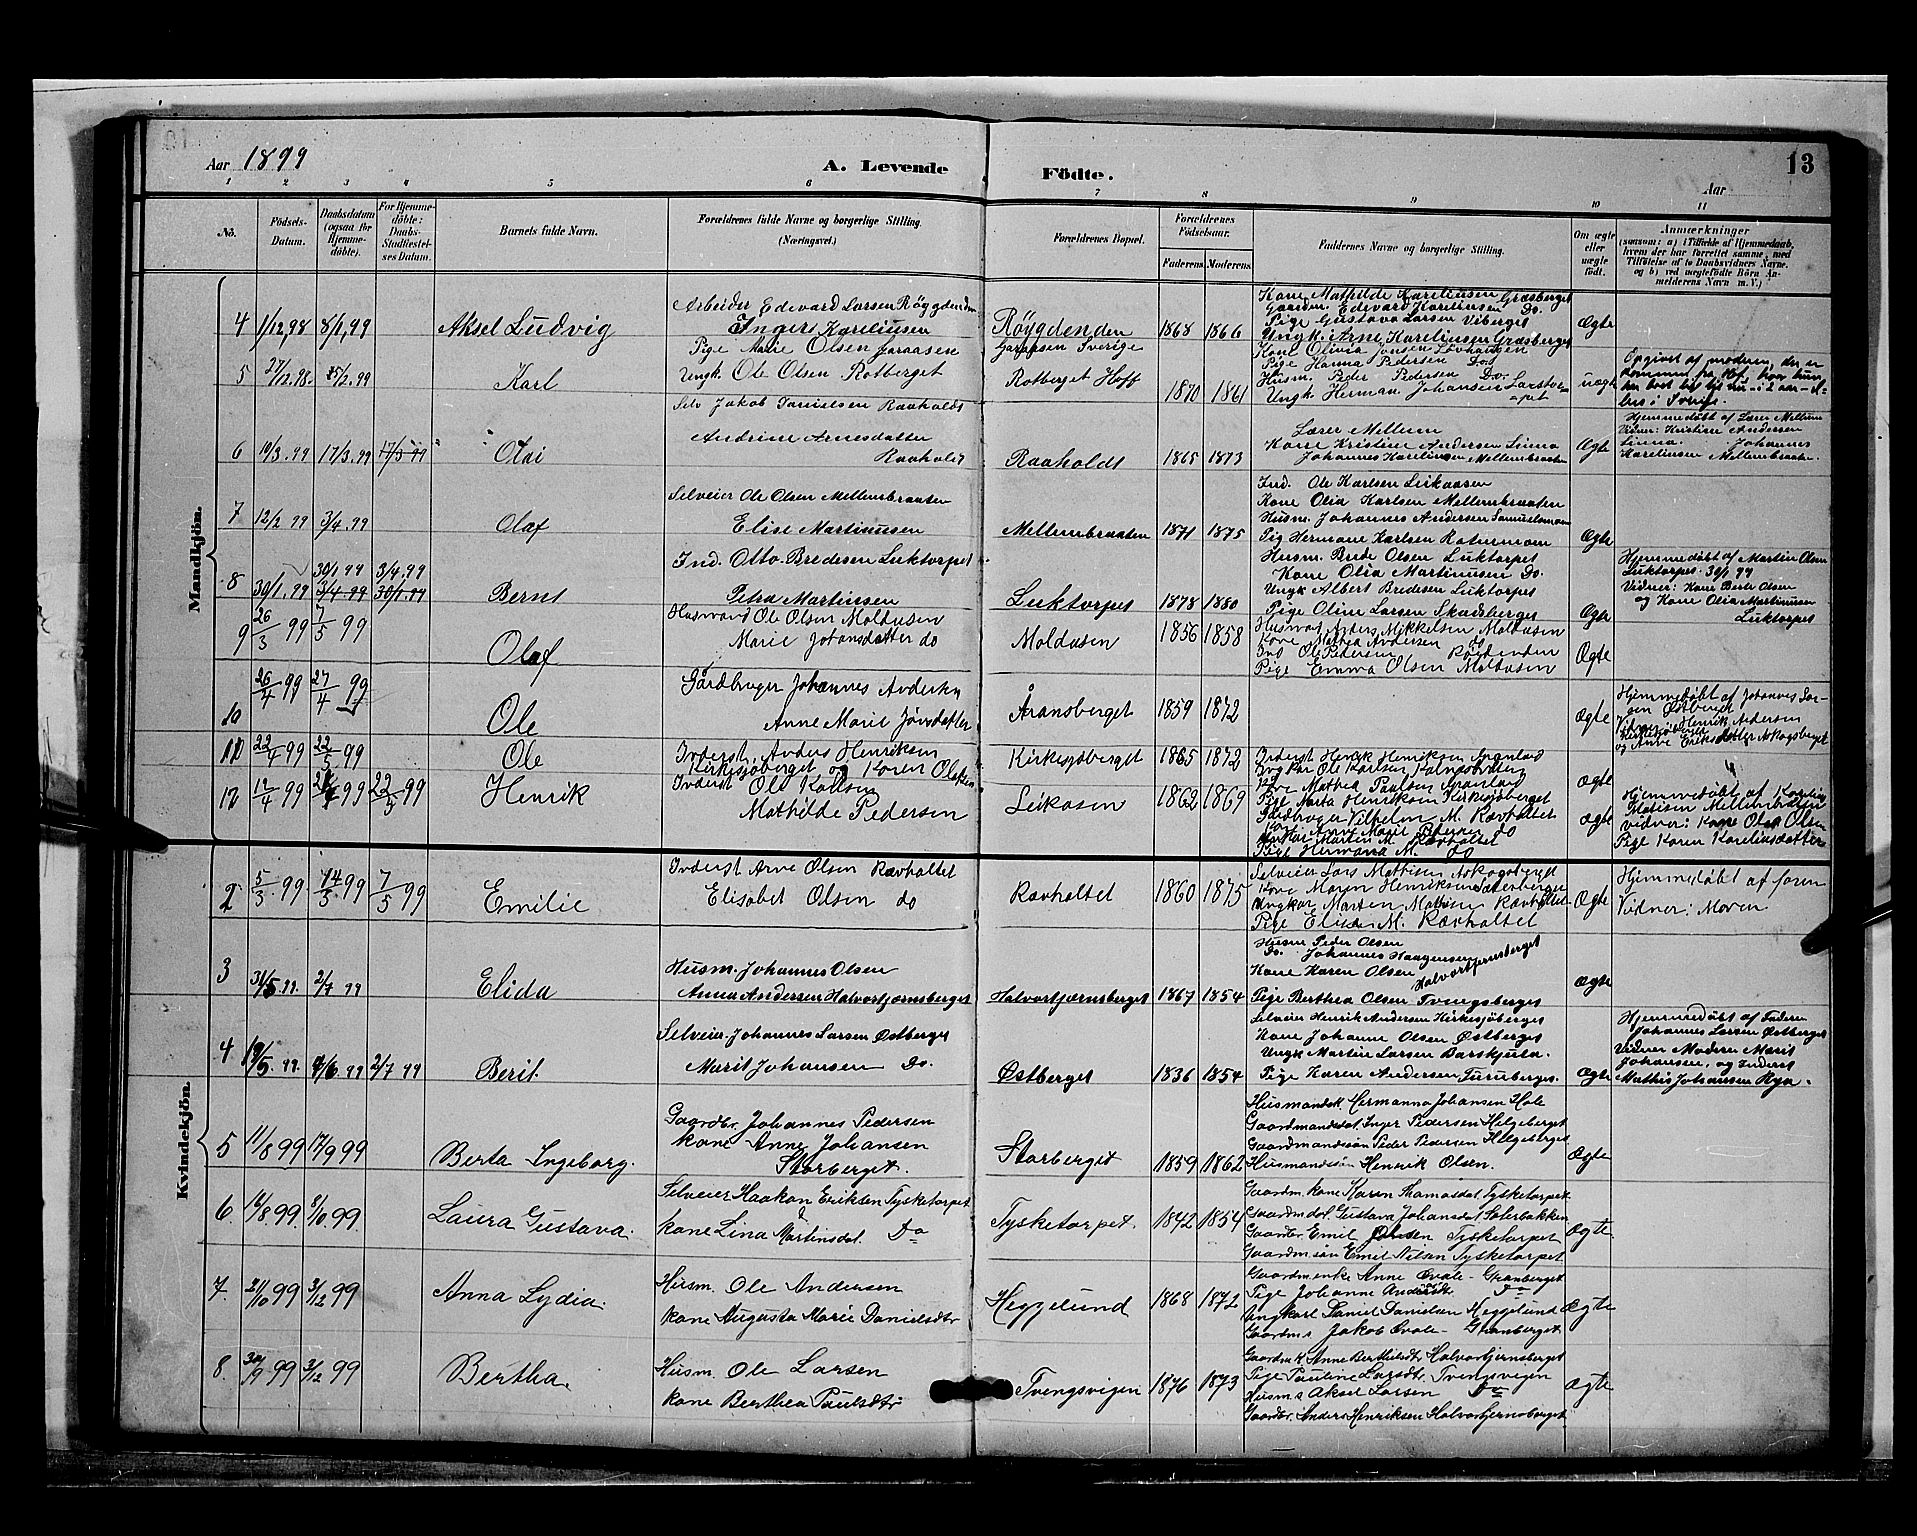 Aar 1899
A. Levende Födte.
Aar
13
1 2 3 4 5 6 7 8 9 10 11
No.
Födsels-Datum.
Daabsdatum (ogsaa for Hjemme-döbte).
For Hjemme-döbte: Daabs-Stadfæstel-ses Datum.
Barnets fulde Navn.
Forældrenes fulde Navne og borgerlige Stilling. (Næringsvei.)
Forældrenes Bopæl.
Forældrenes Födselsaar.
Faderens Moderens
Faddernes Navne og borgerlige Stilling.
Om ægte eller uægte födt.
Anmærkninger
(saasom: a) i Tilfælde af Hjemmedaab, hvem der har forrettet samme, med Tilföielse af to Daabsvidners Navne. og b) ved uægtefödte Börn An-melderens Navn m. V.)
Mandkjön.
4 1/12,98 8/1,99 Aksel Ludvig
Arbeider Edevard Larsen Röygdenden
Inger Kareliusen
Röygdenden 1868 1866
Kone Mathilde Kareliusen Græsberget
Gaardm. Edevard Kareliusen Do.
Pige Gustava Larsen Viberget
Ungk. Arne Kareliusen Græsberget
Ægte
5 27/12.98. 25/2.99 Karl
Pige Marie Olsen Jaraasen
Ungk. Ole Olsen Rotberget
Jaraasen Sverige
Rotberget Hoff 1870 1861
Kone Olivia Jonsen Lövhaugen
Pige Hanna Pedersen Do.
Husm. Peder Pedersen Do.
Ungk. Herman Johansen Larstorpet
uægte
Opgivet af moderen, der er
kommen fra
6 10/3.99 17/3.99 17/5 99 Otai
Selv Jakob Danielsen Ravholdt
Andrine Arnesdatter
Ravholdt
Raaholdt 1865 1873
Lærer Mellem
Kone Kristine Andersen Linna
Johannes Kareliusen Mellembraaten
Ægte
Hjemmedöbt af Lærer Mellem
Vidner: Kristine Andersen
Linna. Johannes
Kareliusen Mellembraaten.
7 12/2 99 3/4.99 Olaf
Selveier Ole Olsen Mellembraaten
Elise Martinusen
Mellembraaten 1871 1875
Ind. Ole Karlsen Leikaasen
Kone Olia Karlsen Mellembraaten
Husm. Johannes Andersen Samuelsmoen
Pig Hermane Karlsen Rotnemoen
Ægte
8 30/1.99 30/1 99 3/4.99 3/4.99 30/1.99 Bernt
Ind. Otto Bredesen Luktorpet
Petra Martinsen
Luktorpet 1878 1880
Husm. Brede Olsen Luktorpet
Kone Olia Martinusen Do.
Ungk Albert Bredesen Luktorpet
Pige Oline Larsen Skadsberget
Ægte
Hjemmedöbt af Martin Olsen
Luktorpet 30/1 99
Vidner: Kone Berte Olsen
og Kone Olia Martinusen
Luktorpet
9 26/3 99 7/5 99 Olaf
Husmand Ole Olsen Moldusen
Marie Johansdatter do
Moldusen 1856 1858
Husmand Anders Mikkelsen Moldusen
Kone Mathea Andersen do
Ind Ole Pedersen Röigdenden
Pige Emma Olsen Moldusen
Ægte
10 26/4 99 27/4 99 Ole
Gardbruger Johannes Andersen
Anne Marie Jönsdatter
Åransberget 1859 1872
Ægte
Hjemmedöbt af Johannes Lar-
sen Östberget
Vidner: Henrik Andersen
og Anne Eriksdatter Askogsberget
11 22/4 99 22/5 99 Ole
Inderst. Anders Henriksen
Kirkesjöberget og Karen Olsen
Kirkesjöberget 1865 1872
Inderst Henrik Henriksen Granlad
Ungkar Ole Karlsen
Kone Mathea Paulsen Granlad
Pige Marta Henriksen Kirkesjöberget
ægte
12 12/4 99 24/4 99 22/5 99 Henrik
Inderst Ole Karlsen
Mathilde Pedersen
Leikasen 1862 1869
Gardbruger Vilhelm M. Rævholtet
Kone Anne Marie Pedersen do
Ungkar Martin M. Rævholtet
Pige Hermana M. do
ægte
Hjemmedöbt af Karelius
Madisen Mellembraaten
vidner: Kone Olea Olsen
Pige Karen Kareliusdatter
Kvindekjön.
2 5/3 99 14/3 99 7/5 99 Emilie
Inderst Arne Olsen Rævholtet
Elisabet Olsen do
Rævholtet 1860 1875
Selveier Lars Mathisen Askogsberget
Kone Maren Henriksen Sæterberget
Ungkar Morten Mathisen Rævholtet
Pige Elise M. Rævholtet
Ægte
Hjemmedöbt af faren
Vidner: Moren
3 31/5.99. 2/7 99 Elida
Husm. Johannes Olsen
Anna Andersen Halvortjernsberget
Halvortjernsberget 1867 1854
Husm Peder Olsen
Do. Johannes Haagensen
Kone Karen Olsen Halvortjernsberget
Pige Berthea Olsen Tvengsberget
Ægte
4 19/5.99. 4/6.99 2/7 99 Berit
Selveier. Johannes Larsen Östberget
Marit Johansen Do.
Østberget 1836 1854
Selveier Henrik Andersen Kirkesjöberget
Kone Johanne Olsen Östberget
Ungk Martin Larsen Barskjula.
Pige Karen Andersen Furuberget.
Ægte
Hjemmedöbt af Faderen
Johannes Larsen Østberget
Vidner Moderen Marit
Johansen, og Inderst
Mathis Johansen Rya.
5 11/8 99 17/9 99 Berta Ingeborg.
Gaardbr. Johannes Pedersen
kone Anne Johansen
Storberget.
Storberget 1859 1862
Husmandsk. Hermanna Johansen Hole
Gaardmandsdat. Inger Pedersen Helgeberget
Gaardmandssön Peder Pedersen Helgeberget
Husmandssön Henrik Olsen.
Ægte
6. 16/8 99. 8/10 99. Laura Gustava.
Selveier Haakon Eriksen Tysketorpet
kone Lina Martinsdat. Do
Tysketorpet. 1842 1854
Gaardm. kone Karen Thomasdat. Tysketorpet
Gaardm.dat. Gustava Johansdat. Sæterbakken
Gaardbr. Emil Olsen Tysketorpet
Gaardm.sön Emil Nilsen Tysketorpet
Ægte.
7. 21/10 99 3/12 99 Anna Lydia.
Husm. Ole Andersen
kone Augusta Marie Danielsdtr
Heggelund 1868 1872
Gaardm.enke Anne Ovale - Granberget
Pige Johanne Andersdtr. Do
Ungkarl Daniel Danielsen Heggelund
Gaardm.s Jakob Ovale - Granberget
Ægte
8. 30/9 99 3/12 99 Bertha.
Husm. Ole Larsen
kone Berthea Paulsdtr
Tvengsvigen 1876 1873
Gaardm.k. Anne Berthelsdtr Halvortjernsberget
Pige Pauline Larsdtr. Tvengsvigen
Husm.s Aksel Larsen Do
Gaardbr. Anders Henriksen Halvortjernsberget
Ægte